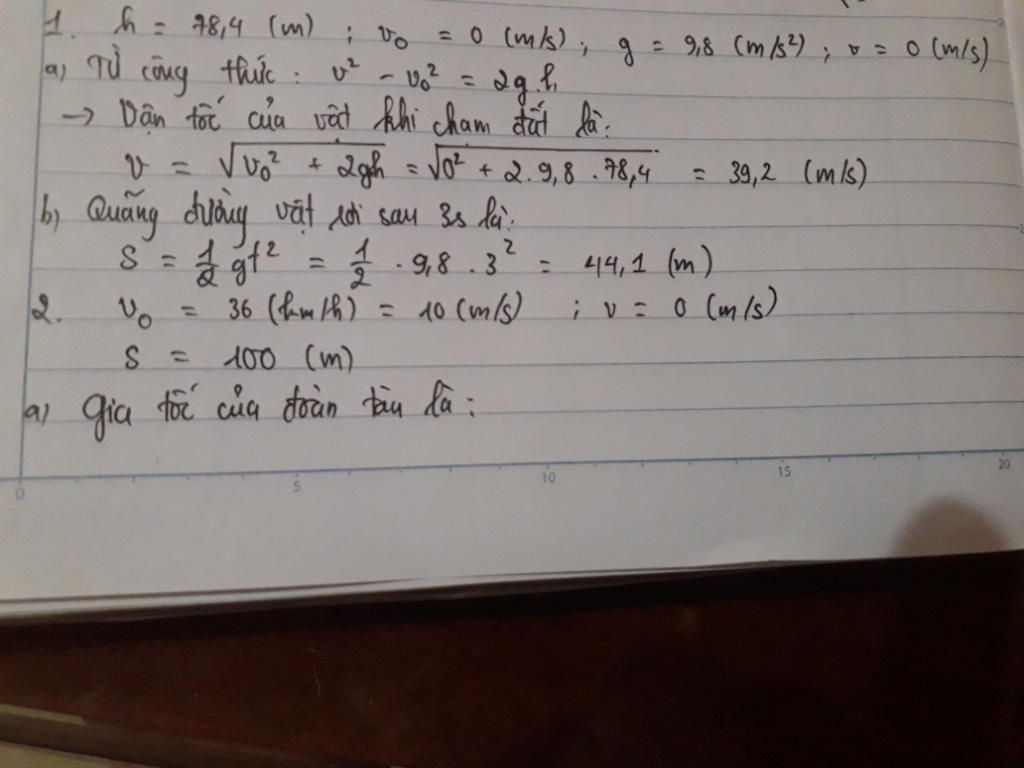 1. h = 78,4 (m) ; v₀ = 0 (m/s) ; g = 9,8 (m/s²) ; v = 0 (m/s)
a) Từ công thức : v² - v₀² = 2gh
→ Vận tốc của vật khi chạm đất là:
v = √(v₀² + 2gh) = √(0² + 2.9,8.78,4) = 39,2 (m/s)
b) Quãng đường vật rơi sau 3s là:
S = 1/2 gt² = 1/2 . 9,8 . 3² = 44,1 (m)
2. v₀ = 36 (km/h) = 10 (m/s) ; v = 0 (m/s)
S = 100 (m)
a) Gia tốc của đoàn tàu là :
0 5 10 15 20